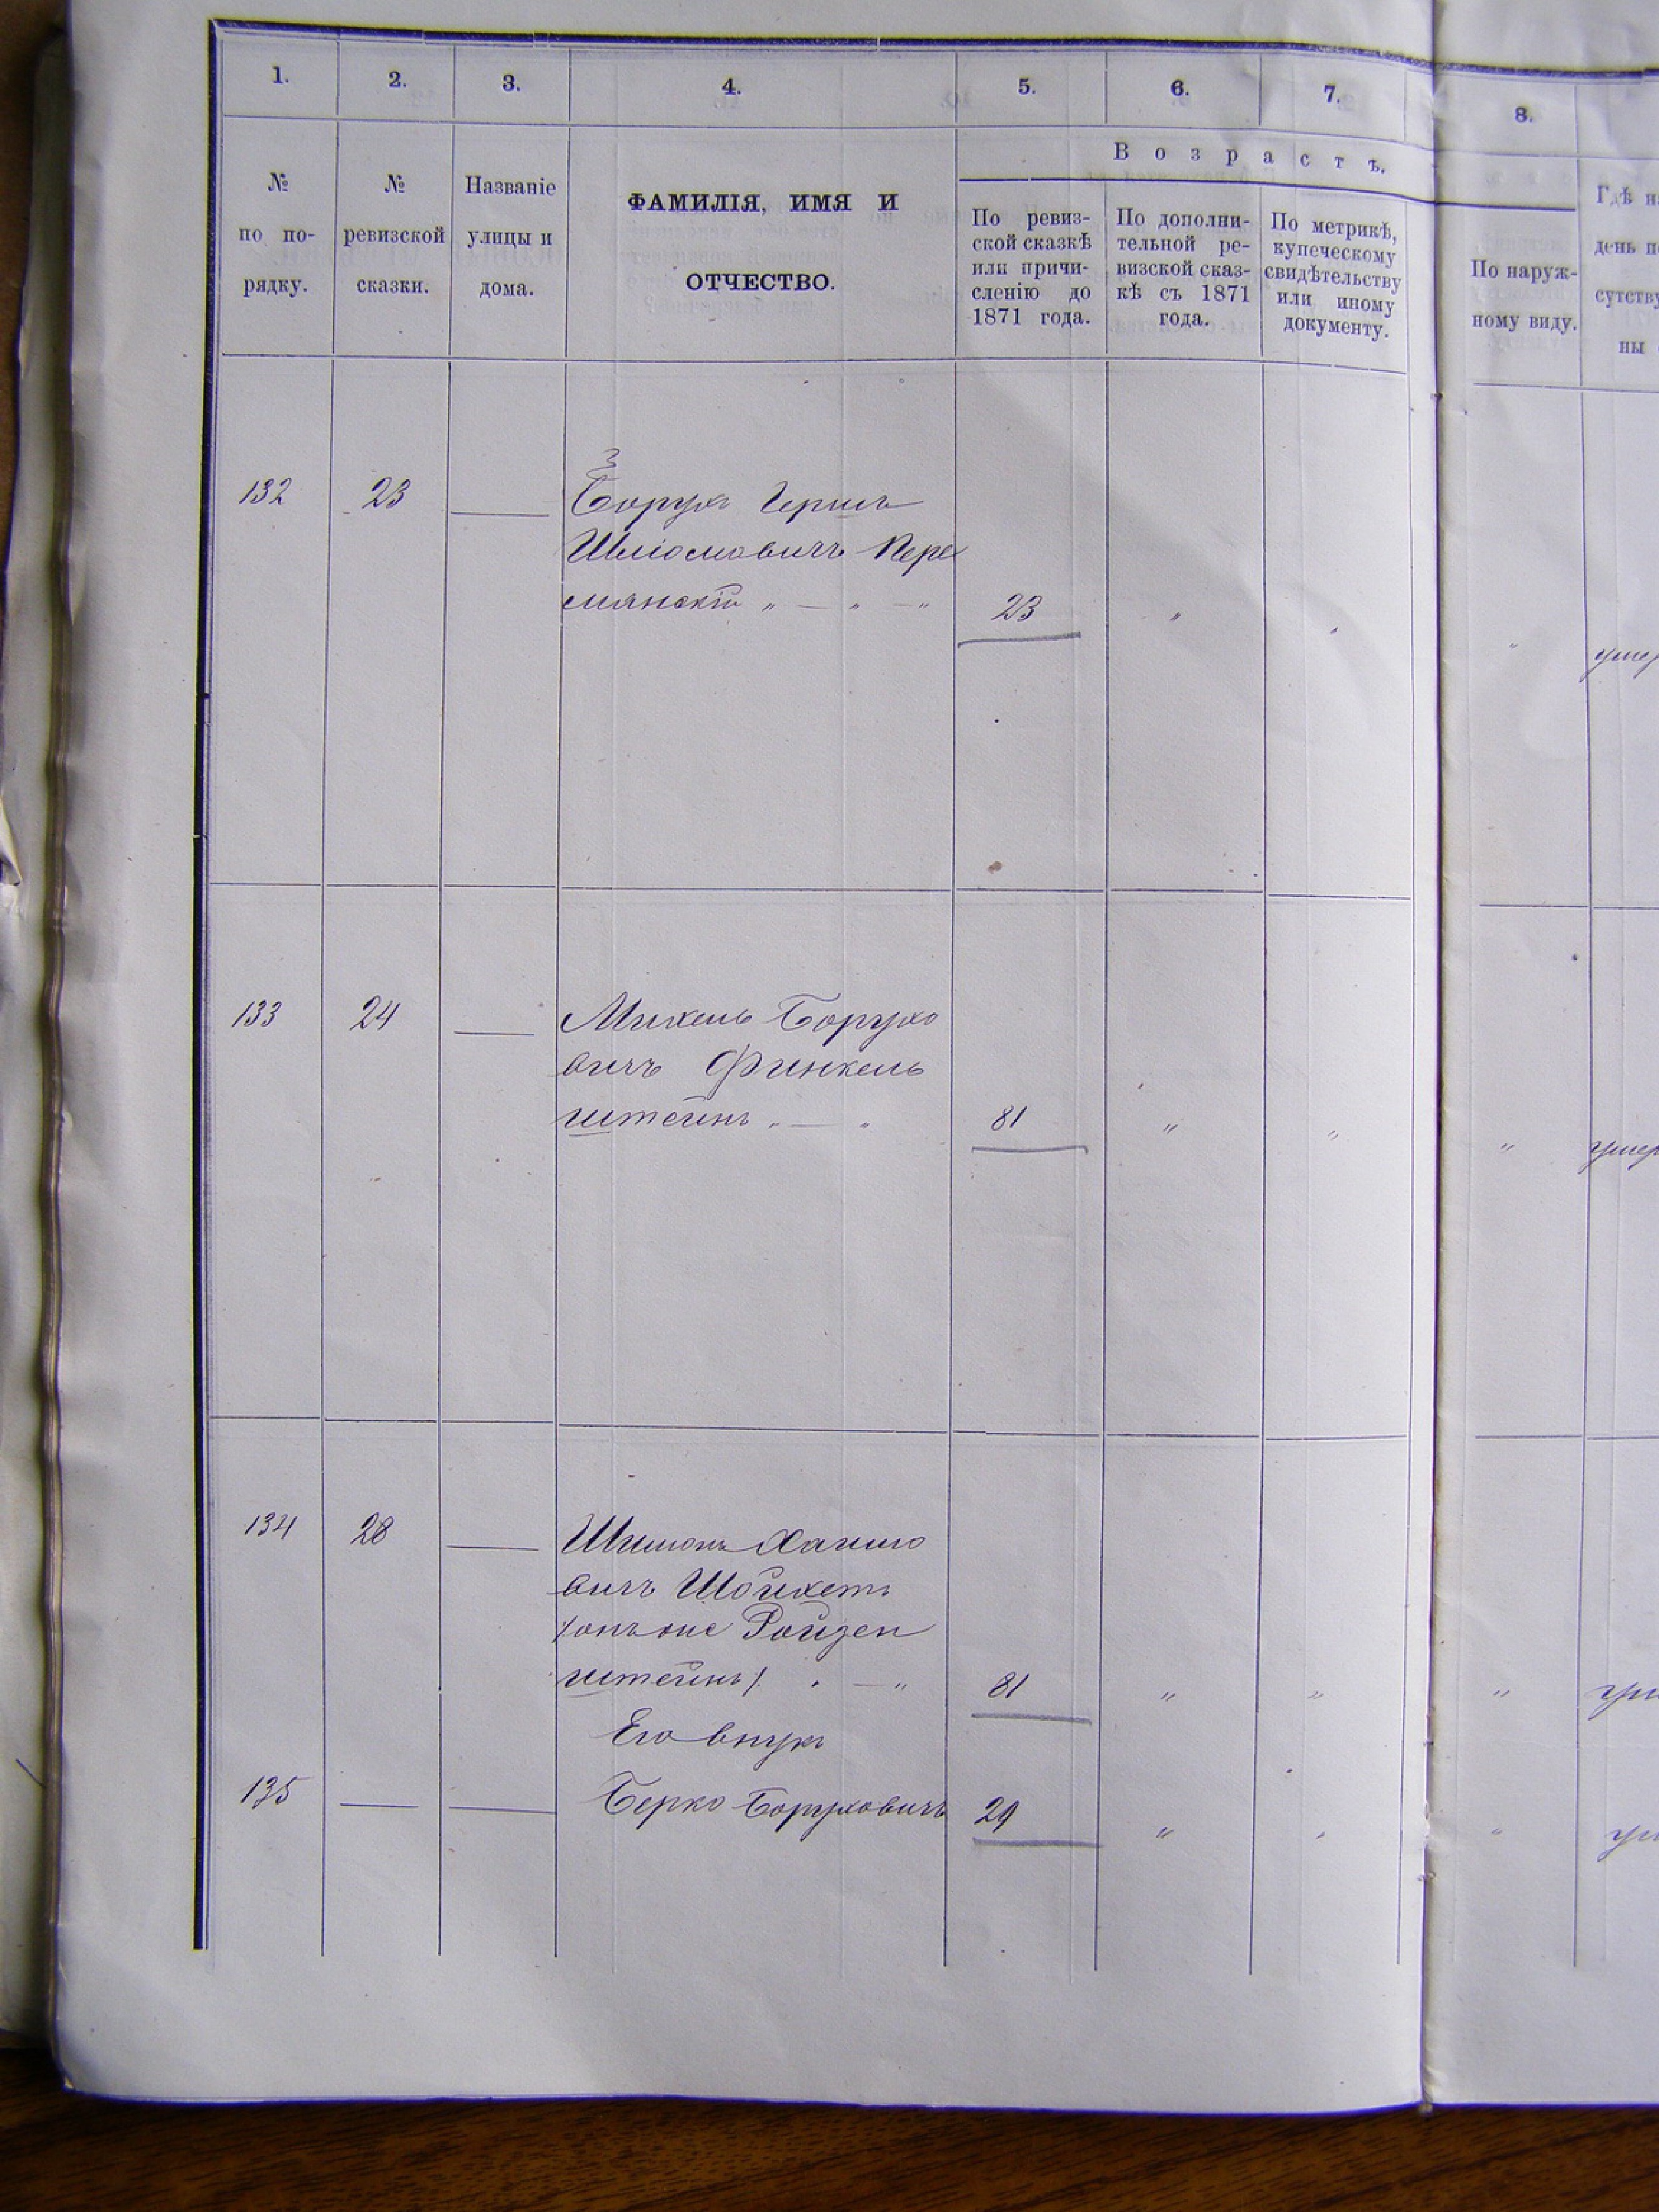 1. 2. 3. 4. 5. 6. 7. 8.
№ по по-рядку.
№ ревизской сказки.
Названіе улицы и дома.
ФАМИЛІЯ, ИМЯ И
ОТЧЕСТВО.
Возрастъ.
По ревиз-
ской сказкѣ
или причи-
сленію до
1871 года.
По дополни-
тельной ре-
визской сказ-
кѣ съ 1871
года.
По метрикѣ,
купеческому
свидѣтельству
или иному
документу.
По наруж-
ному виду.
Гдѣ
день
ны
132 23 Борухъ Гершъ
Шліомовичъ Пере
мянскій " — " — " 23 " "
" умер
133 24 Михель Борухо
вичъ Финкель
штейнъ " — " 81 " "
" умер
134 28 Шимонъ Хаимо
вичъ Шойхетъ
/онъ же Ройзен
штейнъ/ " — " 81 " "
"
Его внукъ
135 Берко Боруховичъ 29 " "
"